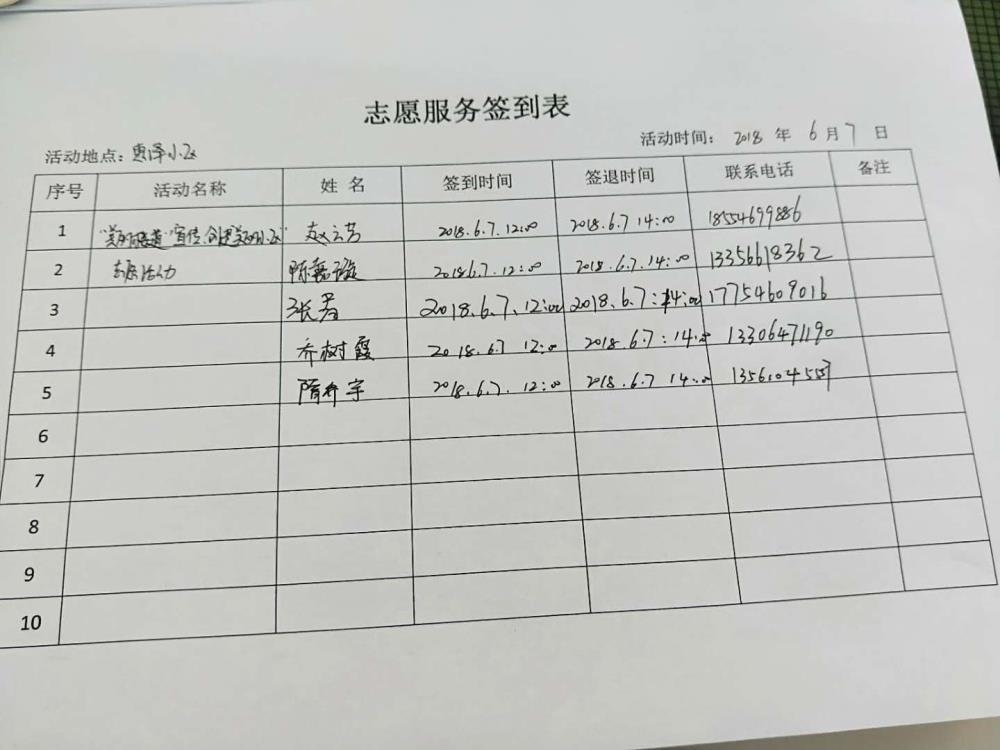 志愿服务签到表
活动地点：惠泽小区 活动时间： 2018 年 6 月 7 日
序号 活动名称 姓名 签到时间 签退时间 联系电话 备注
1 宣传、创建美丽小区" 赵云芳 2018.6.7.12:00 2018.6.7 14:00 18554699886
2 志愿活动 陈嘉璇 2018 6.7.12:00 2018.6.7.14:00 13356618362
3 张芳 2018.6.7.12:00 2018.6.7:14:00 17754609016
4 乔树霞 2018.6.7 12:00 2018.6.7:14:00 13306471190
5 隋 宇 2018.6.7.12:00 2018.6.7 14:00
6
7
8
9
10